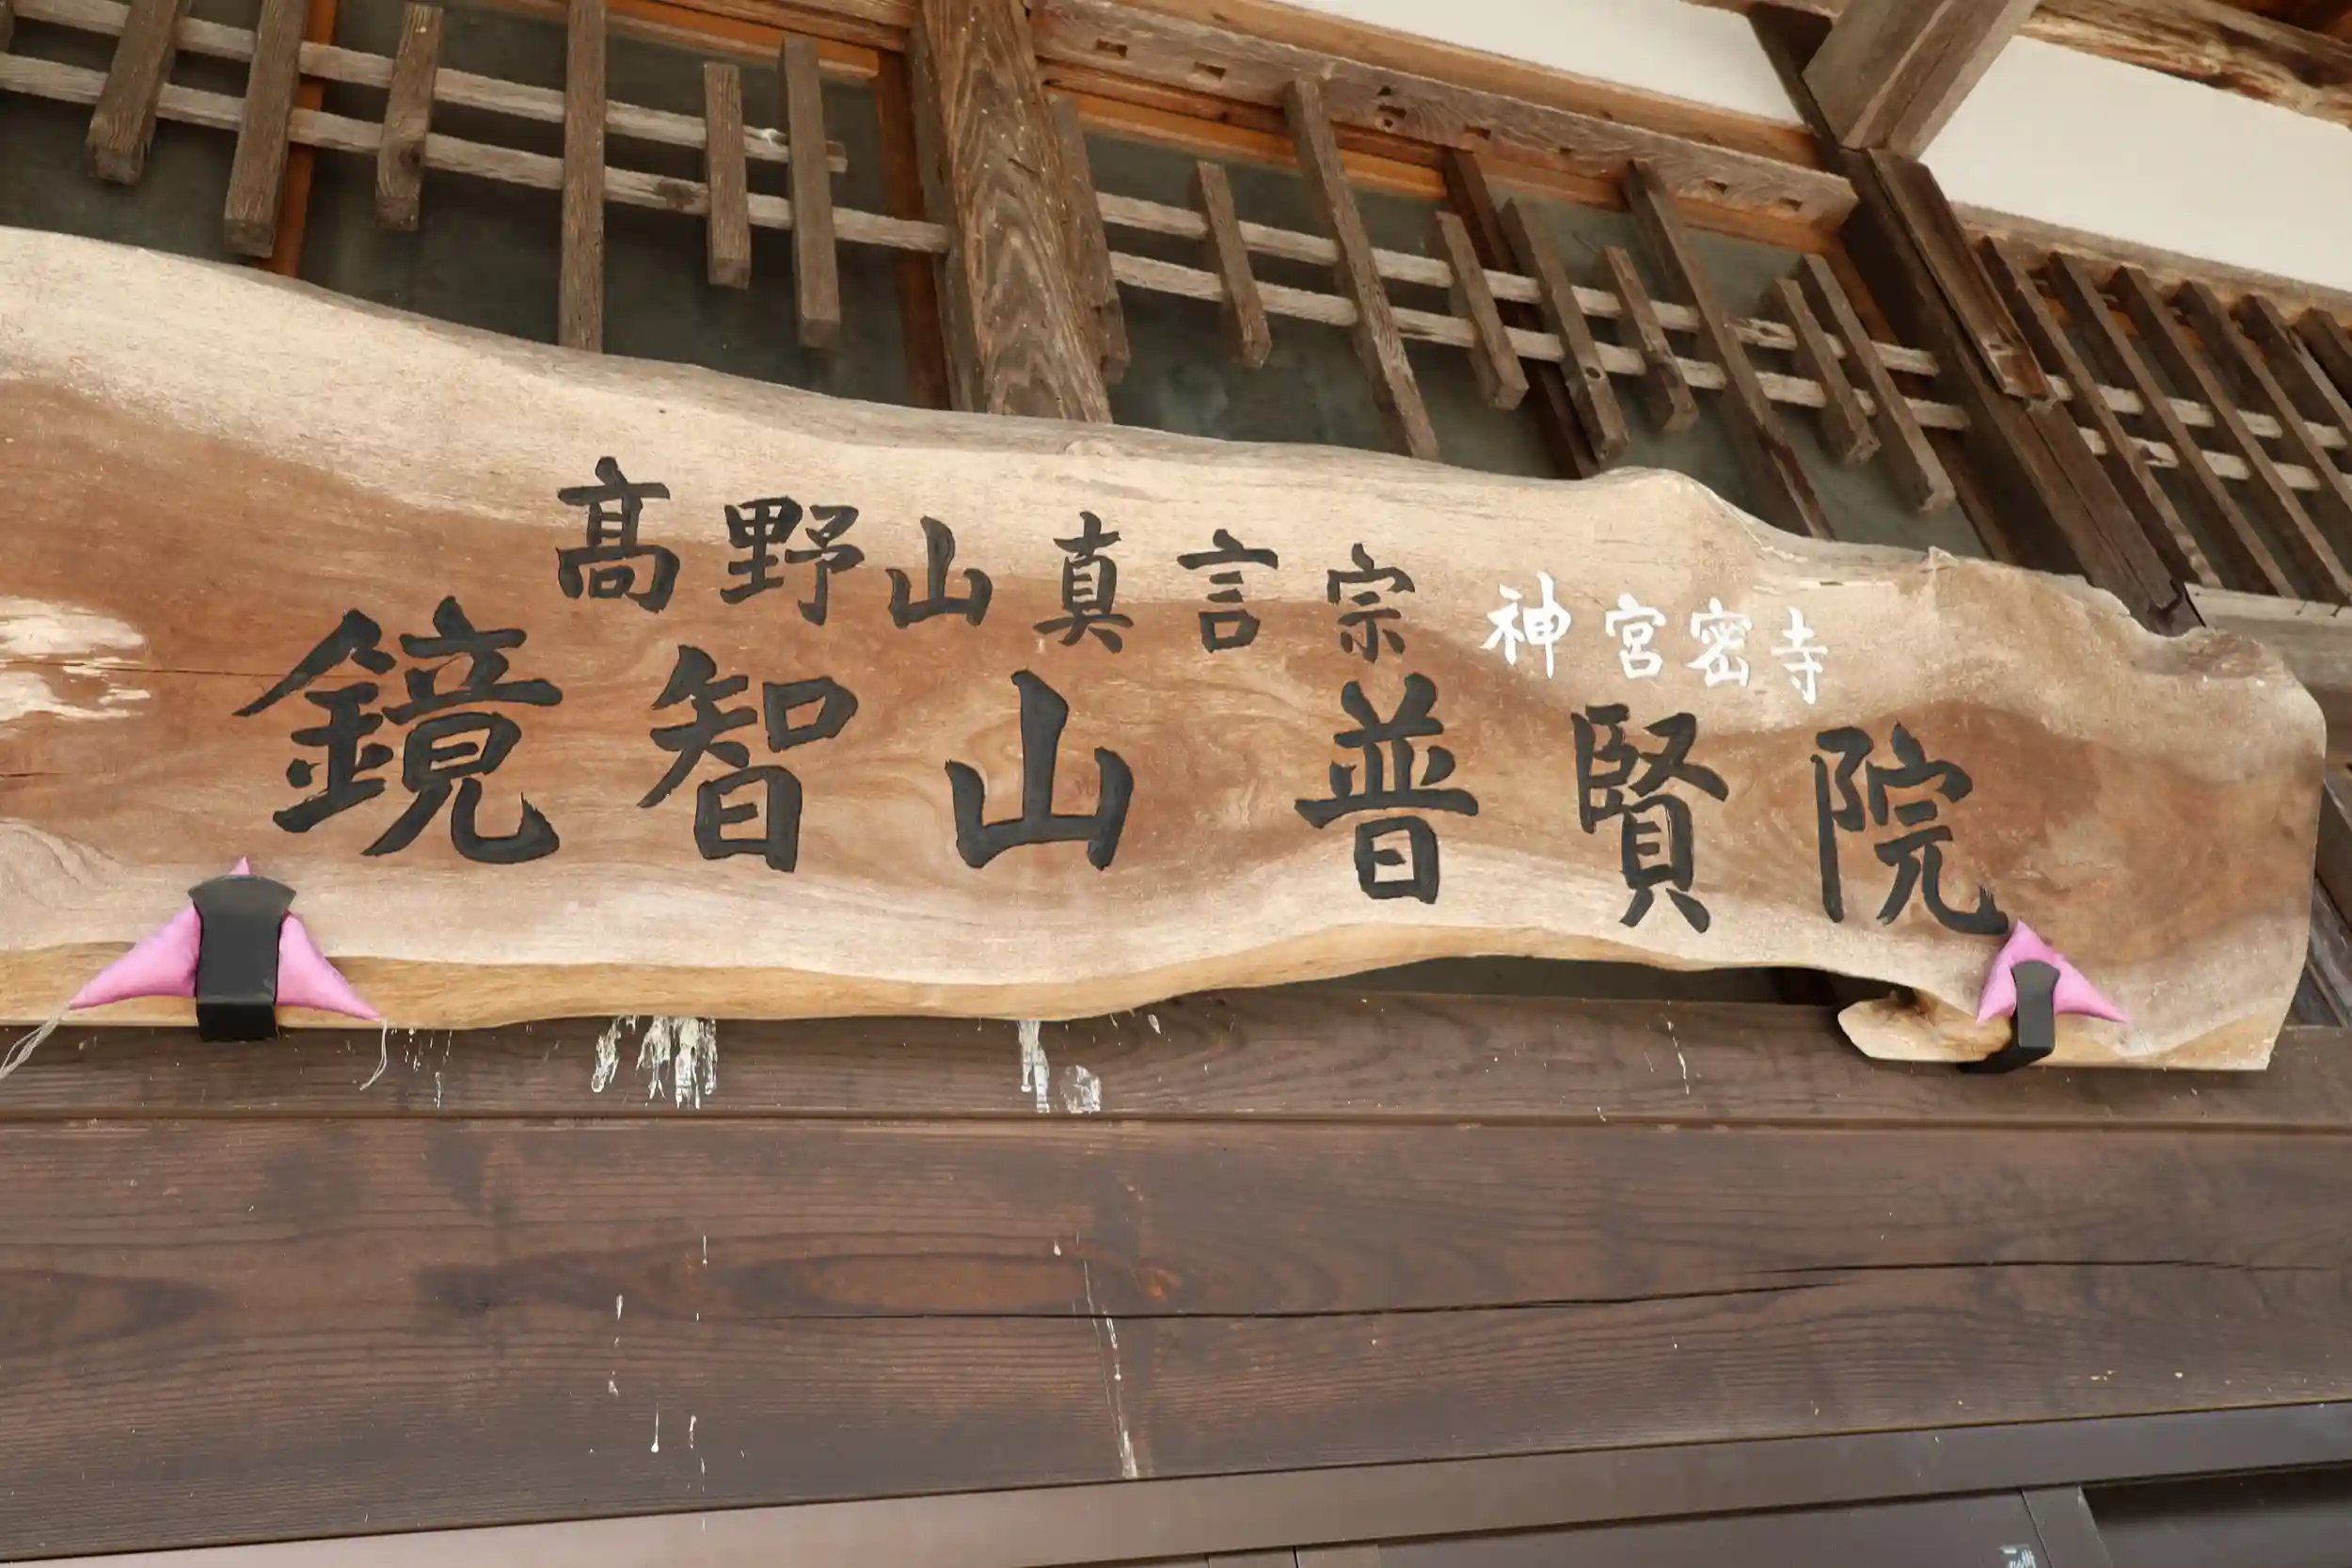 髙野山真言宗 神宮密寺
鏡智山 普賢院